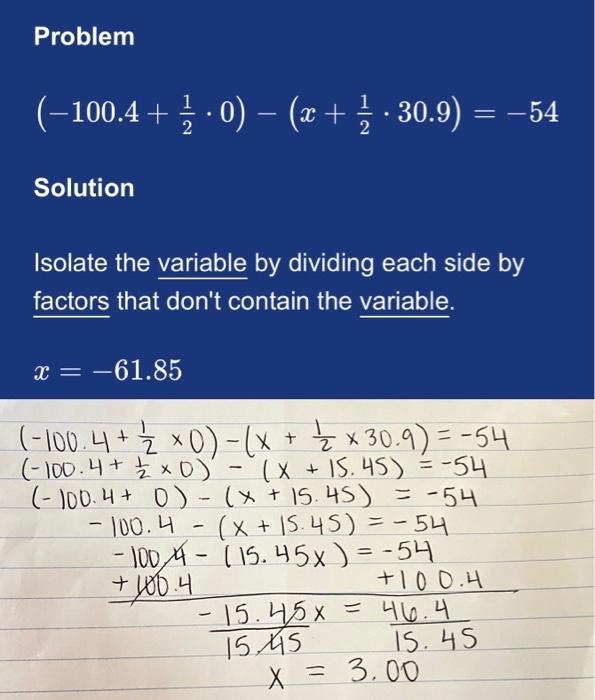 Problem
(−100.4 + 1/2 · 0) − (x + 1/2 · 30.9) = −54
Solution
Isolate the variable by dividing each side by
factors that don't contain the variable.
x = −61.85
(-100.4 + 1/2 × 0) - (x + 1/2 × 30.9) = -54
(-100.4 + 1/2 × 0) - (x + 15.45) = -54
(-100.4 + 0) - (x + 15.45) = -54
-100.4 - (x + 15.45) = -54
-100.4 - (15.45x) = -54
+100.4 +100.4
-15.45x = 46.4
15.45 15.45
x = 3.00